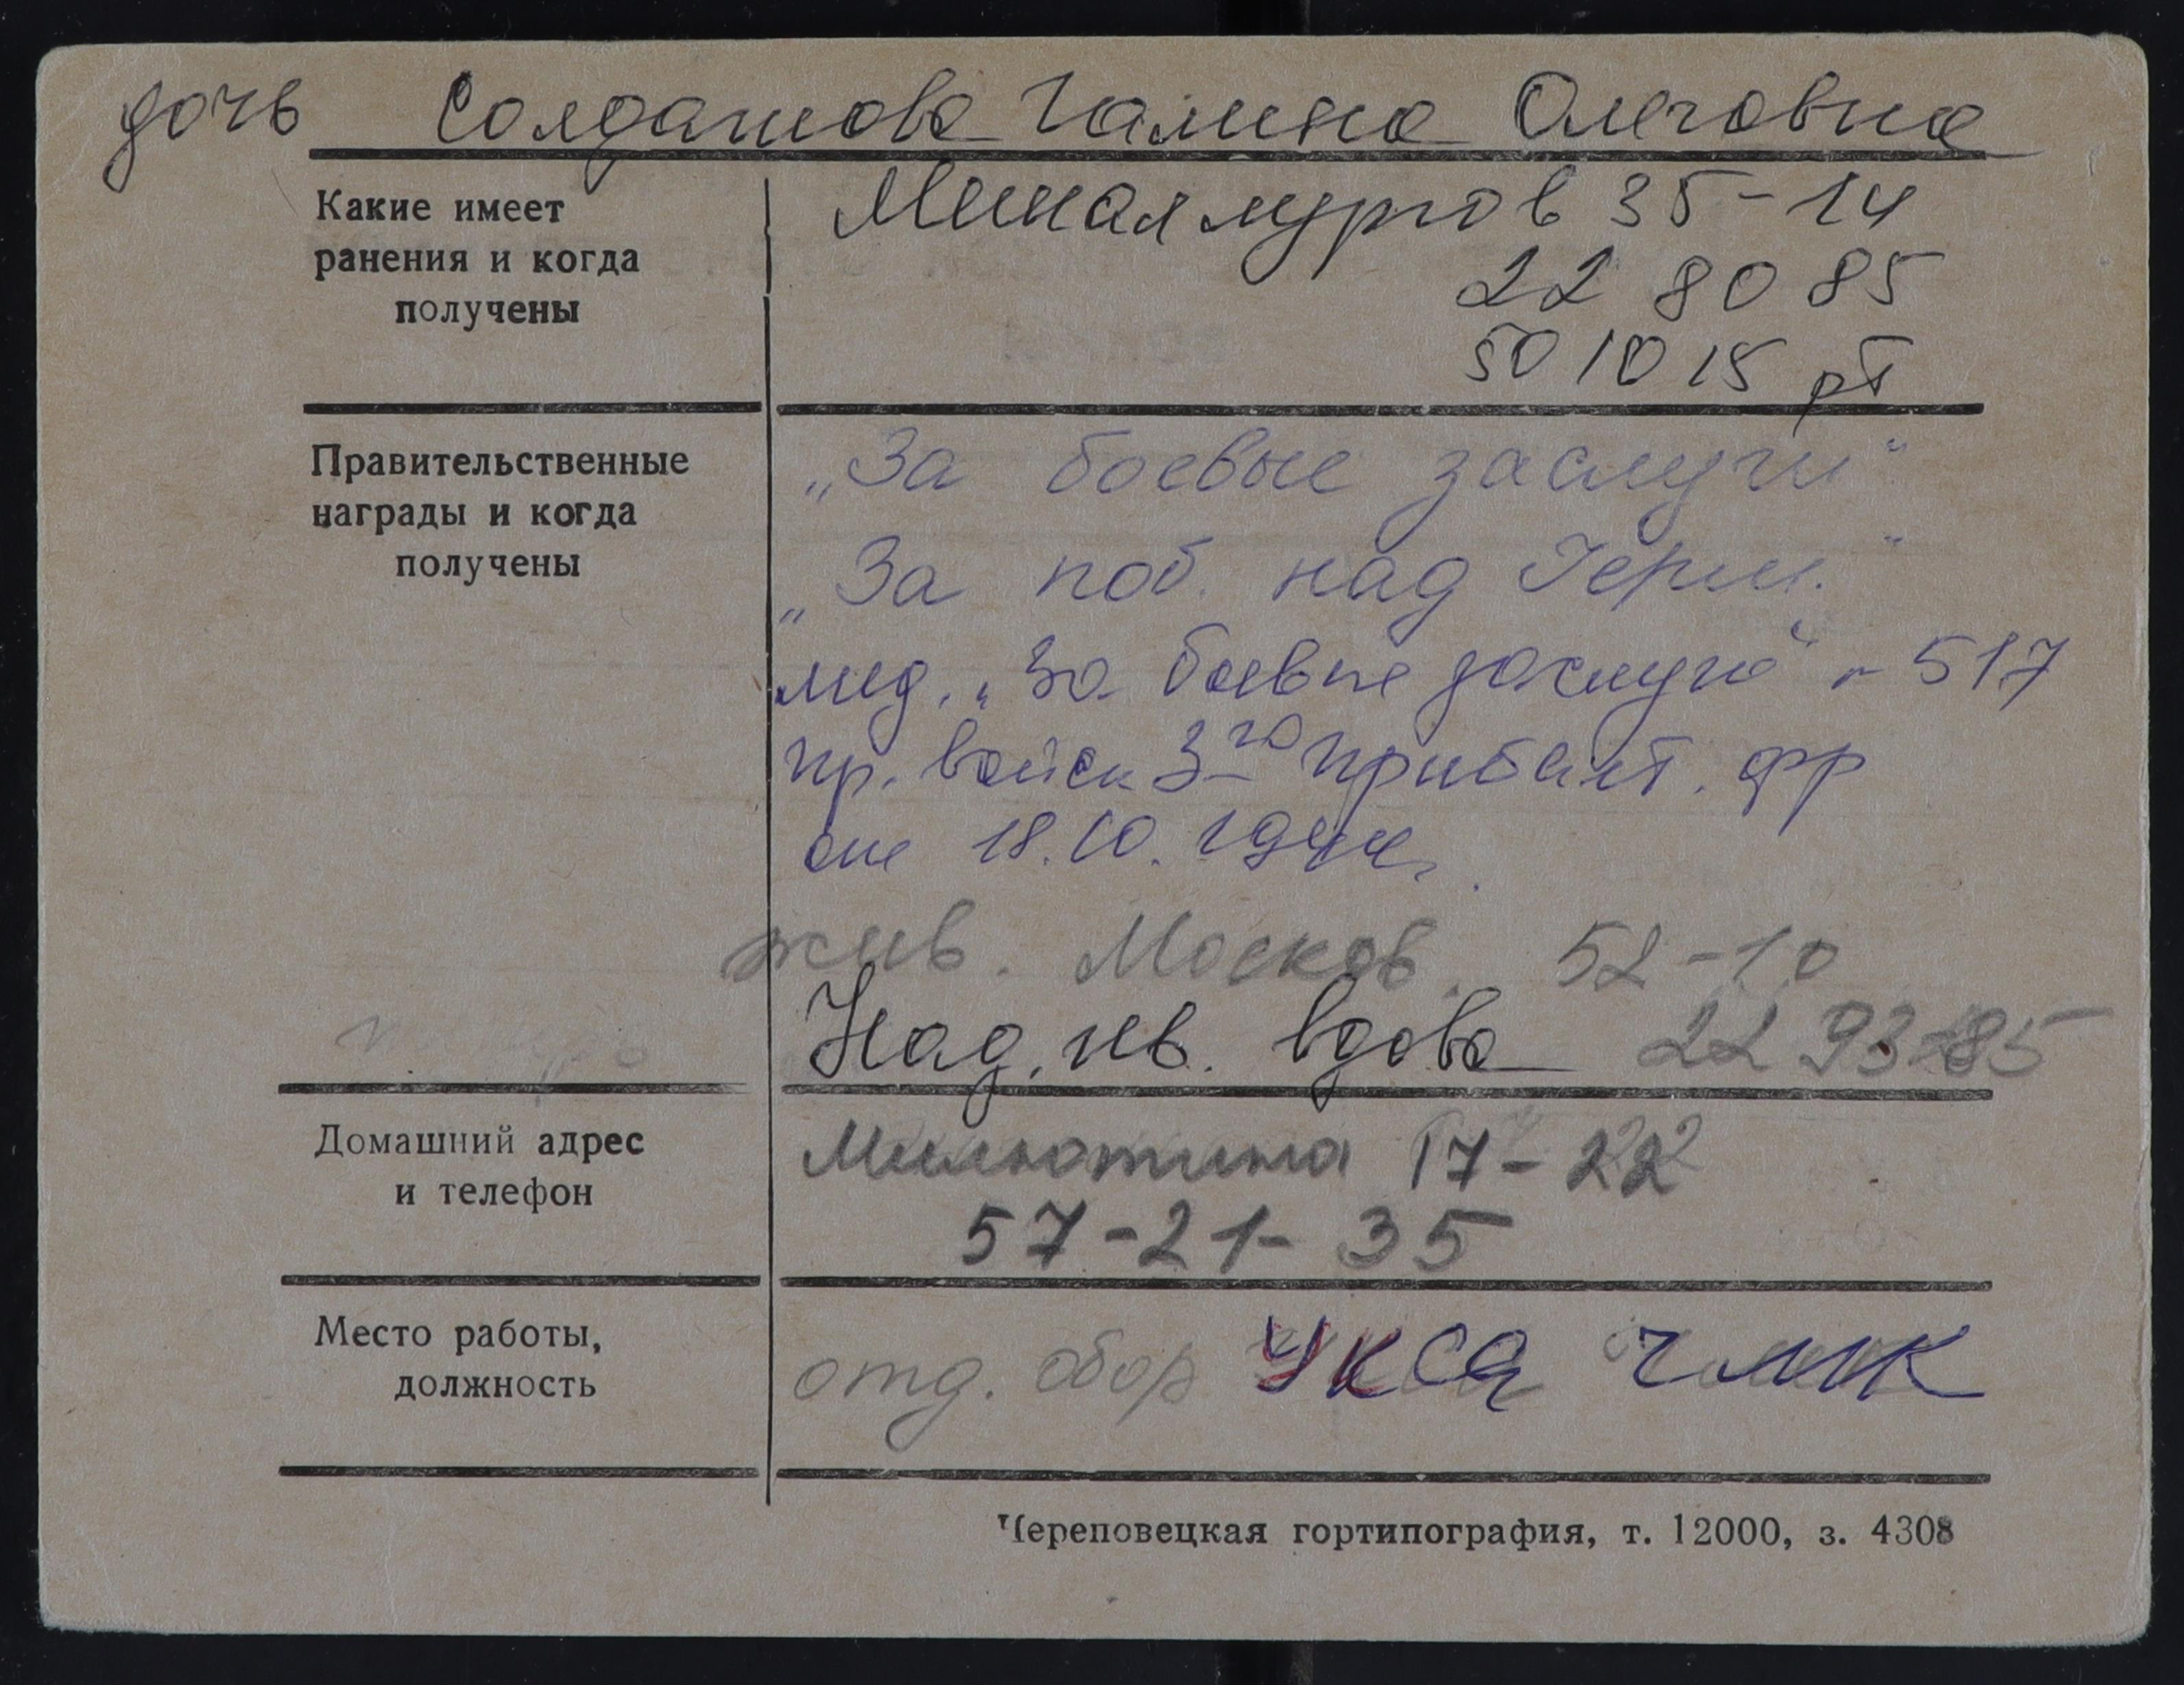 дочь Солдатова Галина Олеговна
Какие имеет
ранения и когда
получены
Металлургов 35-14
22 80 85
50 10 15 рт
Правительственные
награды и когда
получены
„За боевые заслуги"
„За поб. над Герм."
мед. „За боевые заслуги" 517
пр. войск 3го Прибалт. фр
от 18.10.1944
жив. Москов. 52-10
Над. Ив. вдова 22 93-85
Домашний адрес
и телефон
Милютина 17-22
57-21-35
Место работы,
должность
отд. обор УКСа ЧМК
Череповецкая гортипография, т. 12000, з. 4308